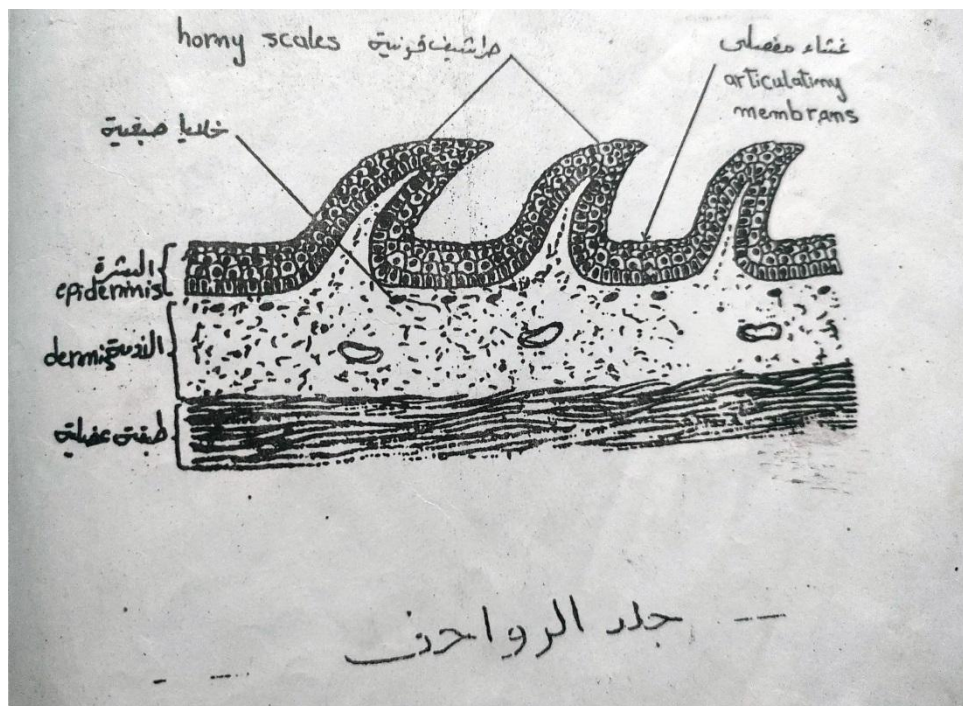 horny scales حراشيف قرنية
غشاء مفصلي
articulatimy
membrans
خلايا صبغية
البشرة
epidermis
dermis الادمة
طبقة عضلية
جلد الزواحف